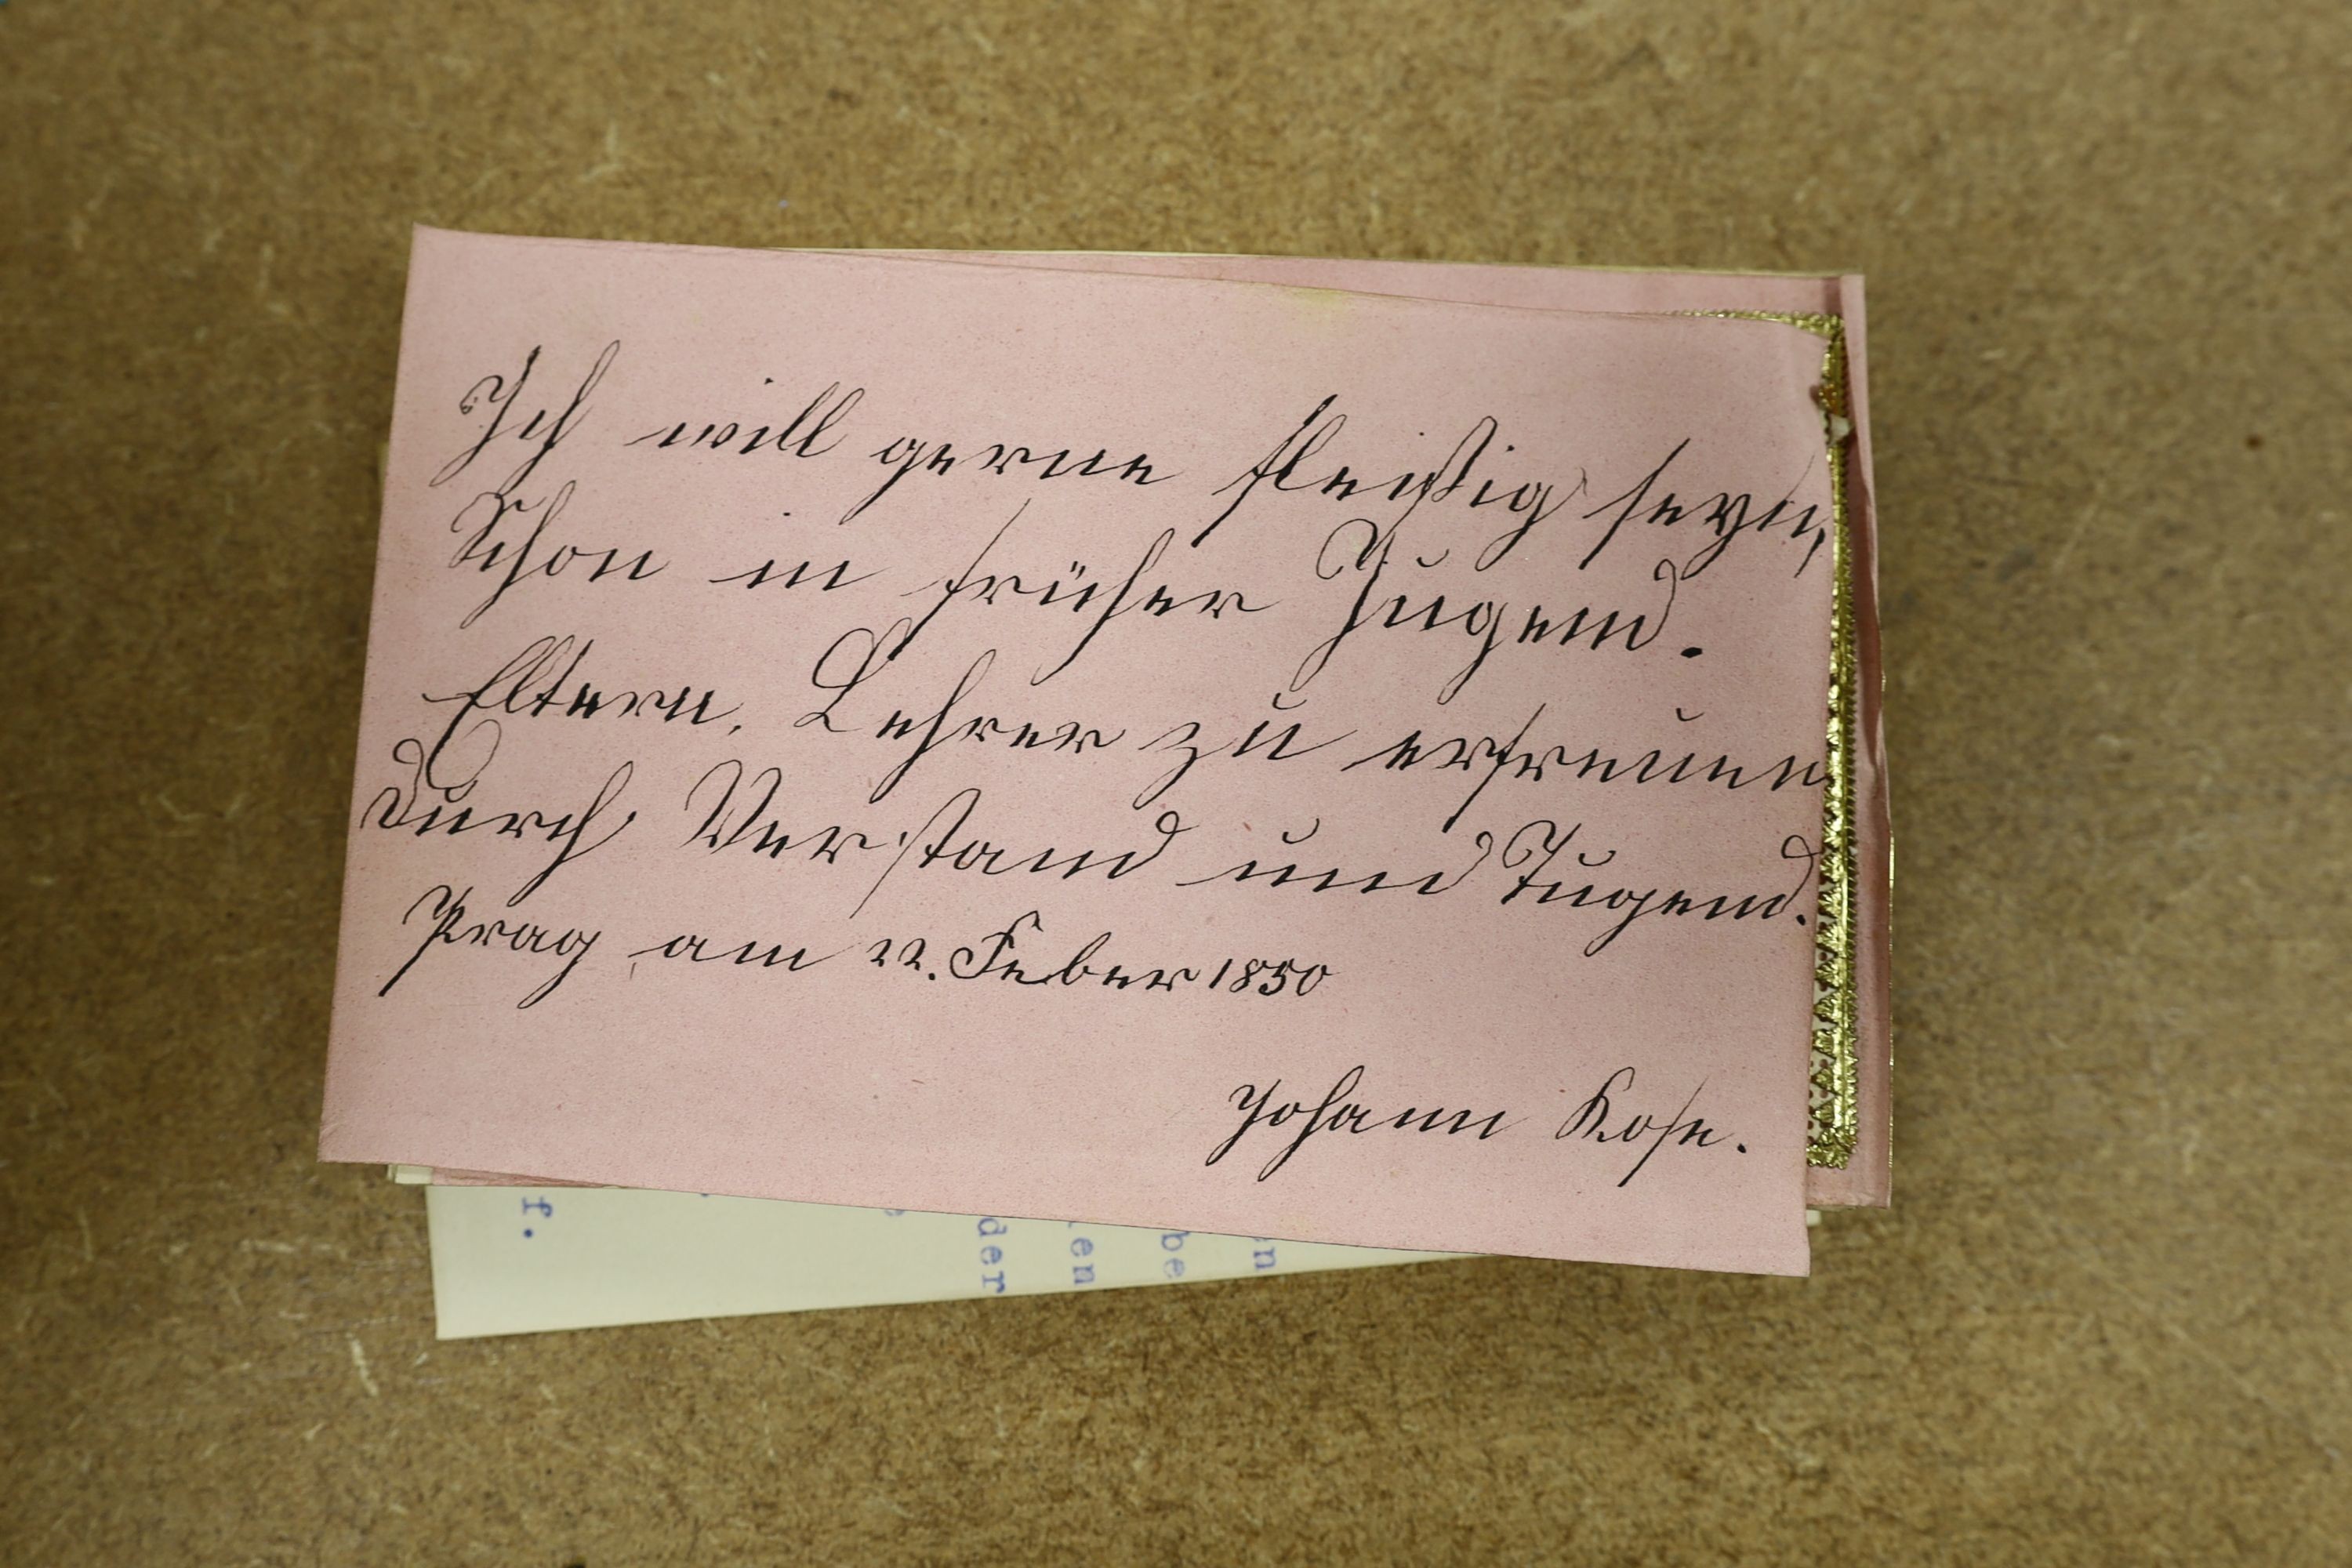 Ich will gerne fleißig seyn,
Schon in früher Jugend.
Eltern, Lehrer zu erfreuen
Durch Verstand und Tugend.
Prag am 22. Feber 1850
Johann Kose.
f.
der
en
be
en